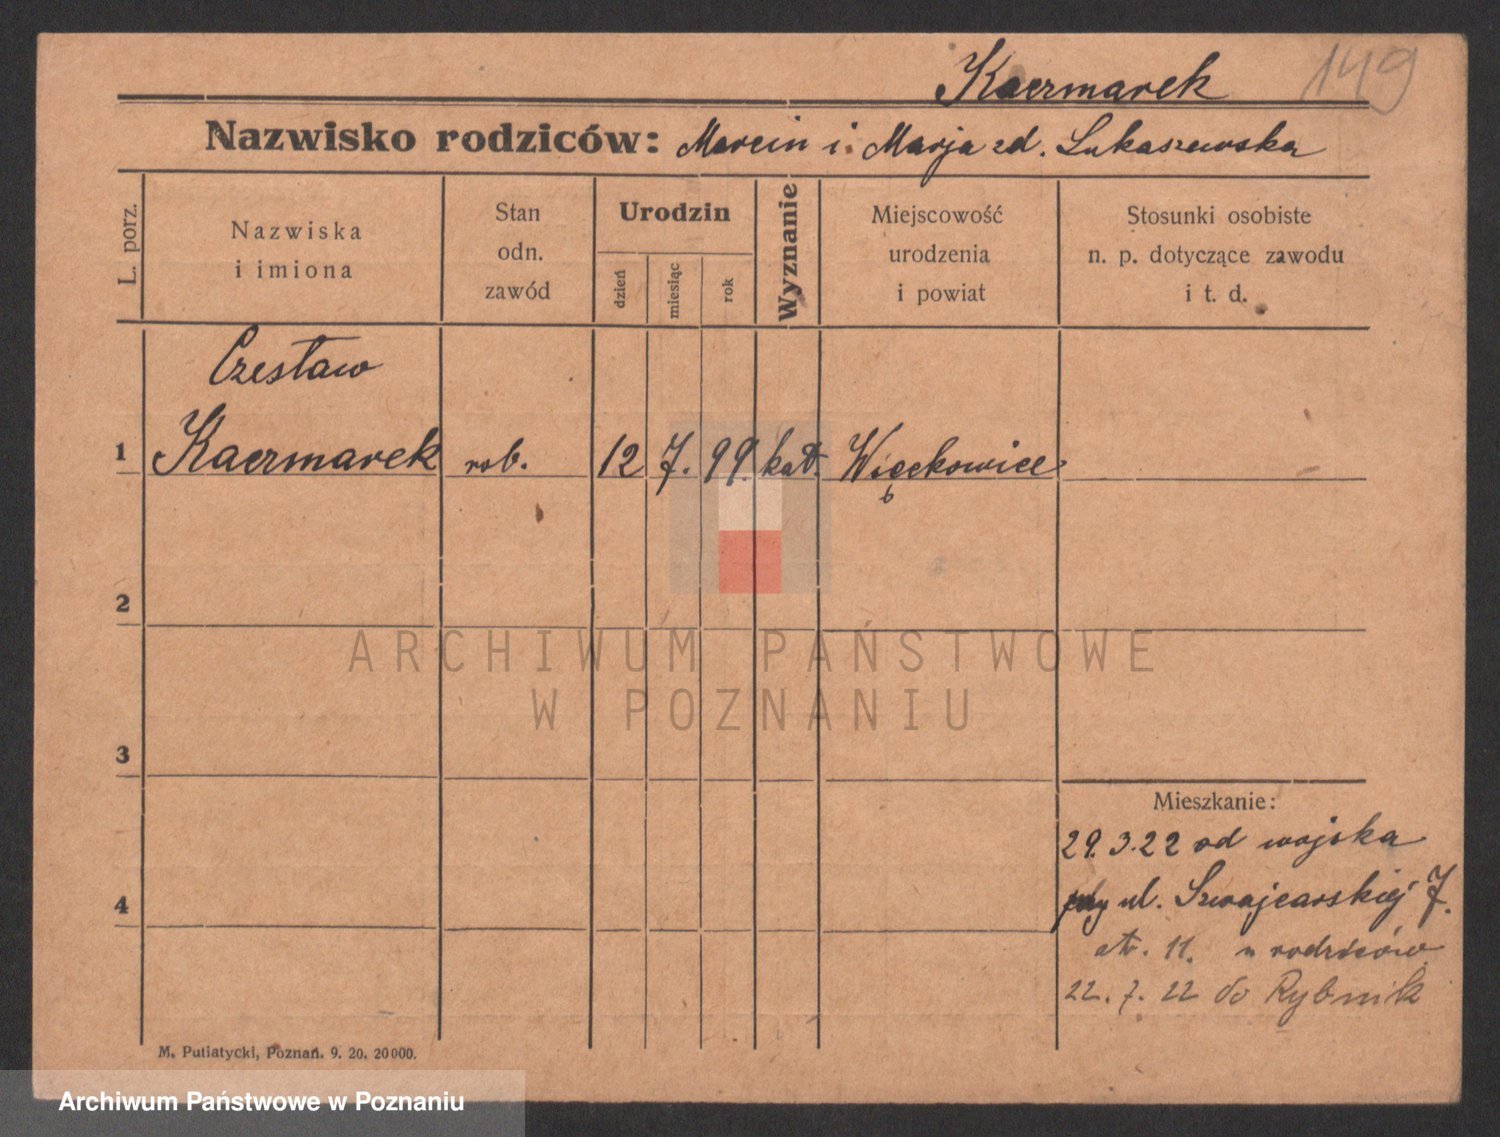 Kaczmarek 149
Nazwisko rodziców: Marcin i Marja zd. Łukaszewska
L. porz.
Nazwiska
i imiona
Stan
odn.
zawód
Urodzin
dzień
miesiąc
rok
Wyznanie
Miejscowość
urodzenia
i powiat
Stosunki osobiste
n. p. dotyczące zawodu
i t. d.
Czesław
1 Kaczmarek rob. 12 7. 99. kat. Więckowice
2
3
4
ARCHIWUM PAŃSTWOWE
W POZNANIU
Mieszkanie:
29.3.22 od wojska
ul. Szwajcarskiej 7.
11. u rodziców
22.7.22 do Rybnik
M. Putiatycki, Poznań. 9. 20. 20000.
Archiwum Państwowe w Poznaniu